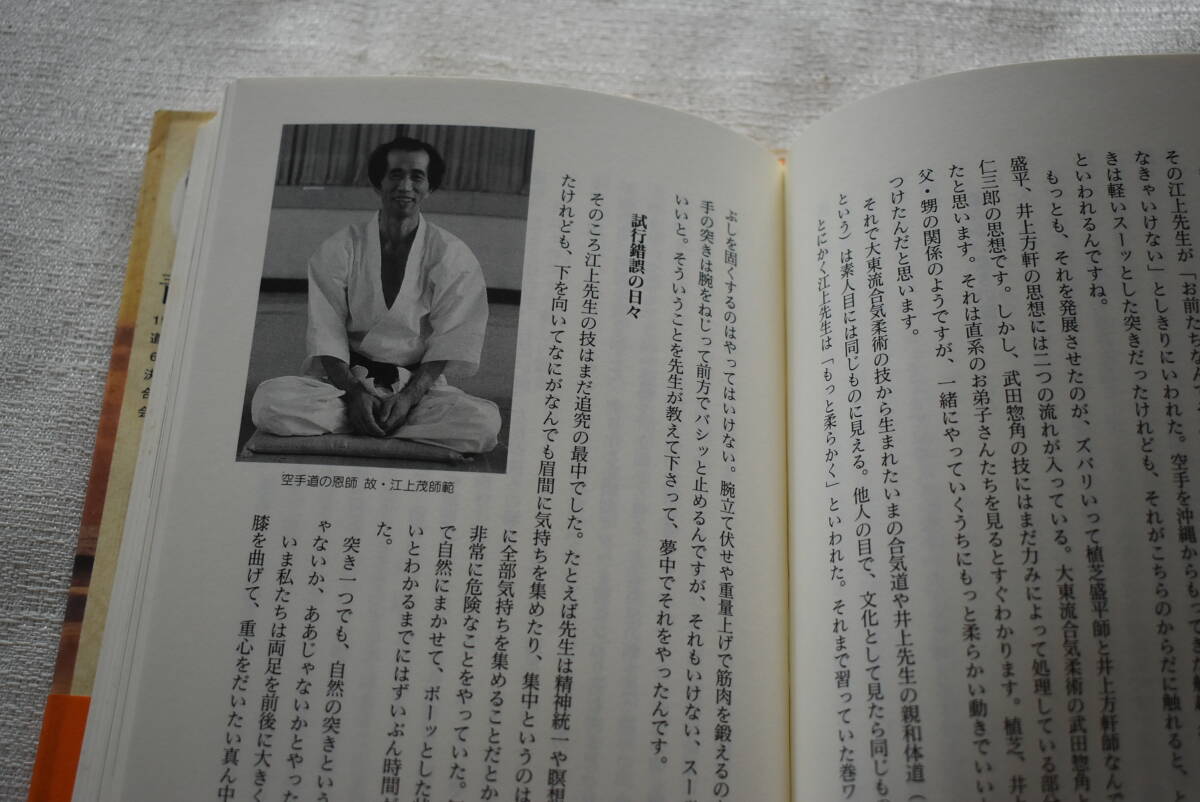 その江上先生が「お前たちなん
なきゃいけない」としきりにいわれた。空手を沖縄からもってき
きは軽いスーッとした突きだったけれども、それがこちらのからだに触れると、と
といわれるんですね。
もっとも、それを発展させたのが、ズバリいって植芝盛平師と井上方軒師なんで
盛平、井上方軒の思想には二つの流れが入っている。大東流合気柔術の武田惣角
仁三郎の思想です。しかし、武田惣角の技にはまだ力みによって処理している部分
たと思います。それは直系のお弟子さんたちを見るとすぐわかります。植芝、井上
父・甥の関係のようですが、一緒にやっていくうちにもっと柔らかい動きでいい
つけたんだと思います。
それで大東流合気柔術の技から生まれたいまの合気道や井上先生の親和体道（
という）は素人目には同じものに見える。他人の目で、文化として見たら同じもの
とにかく江上先生は「もっと柔らかく」といわれた。それまで習っていた巻ワ
ぶしを固くするのはやってはいけない。腕立て伏せや重量上げで筋肉を鍛えるの
手の突きは腕をねじって前方でバシッと止めるんですが、それもいけない、スー
いいと。そういうことを先生が教えて下さって、夢中でそれをやったんです。
試行錯誤の日々
そのころ江上先生の技はまだ追究の最中でした。たとえば先生は精神統一や瞑想
たけれども、下を向いてなにがなんでも眉間に気持ちを集めたり、集中というのは
に全部気持ちを集めることだとか
非常に危険なことをやっていた。
で自然にまかせて、ボーッとした
いとわかるまでにはずいぶん時間が
た。
突き一つでも、自然の突きという
ゃないか、ああじゃないかとやった
いま私たちは両足を前後に大きく
膝を曲げて、重心をだいたい真ん中
空手道の恩師 故・江上茂師範